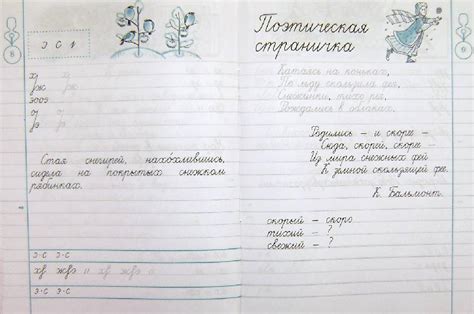 Э С 1
эоэ
Стая снегирей, нахохлившись,
сидела на покрытых снежком
рябинках.
Э-С Э-С
Э-С Э-С
Поэтическая
страничка
Катаясь на коньках,
По льду скользила фея,
Снежинки, тихо рея,
Рождались в облаках.
Родились — и скорее —
Сюда, скорей, скорее —
Из мира снежных фей
К земной скользящей фее.
К. Бальмонт.
скорый — скоро
тихий — ?
свежий — ?